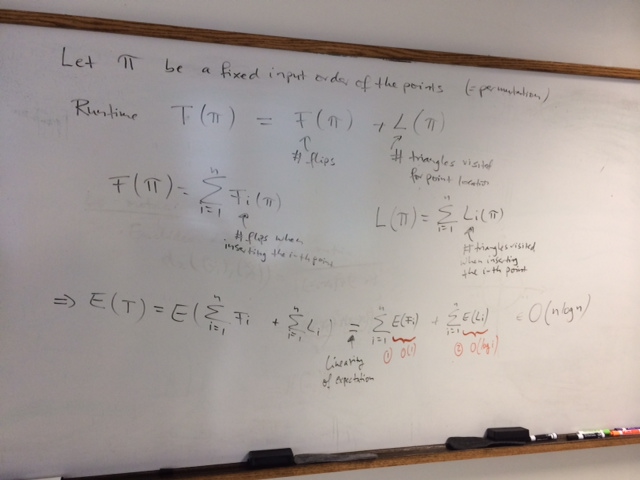 Let π be a fixed input order of the points (= permutation)
Runtime T(π) = F(π) + L(π)
# flips
# triangles visited
for point location
F(π) = Σ_{i=1}^{n} F_i(π)
# flips when
inserting the i-th point
L(π) = Σ_{i=1}^{n} L_i(π)
# triangles visited
when inserting
the i-th point
⇒ E(T) = E(Σ_{i=1}^{n} F_i + Σ_{i=1}^{n} L_i) = Σ_{i=1}^{n} E(F_i) + Σ_{i=1}^{n} E(L_i) ∈ O(n log n)
① O(1)
② O(log i)
Linearity
of expectation